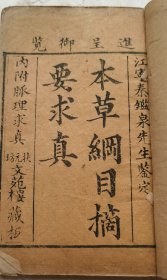 進呈御覽
江寧秦鑑泉先生鑒定
本草綱目摘
要求真
內附脈理求真
文苑樓藏板